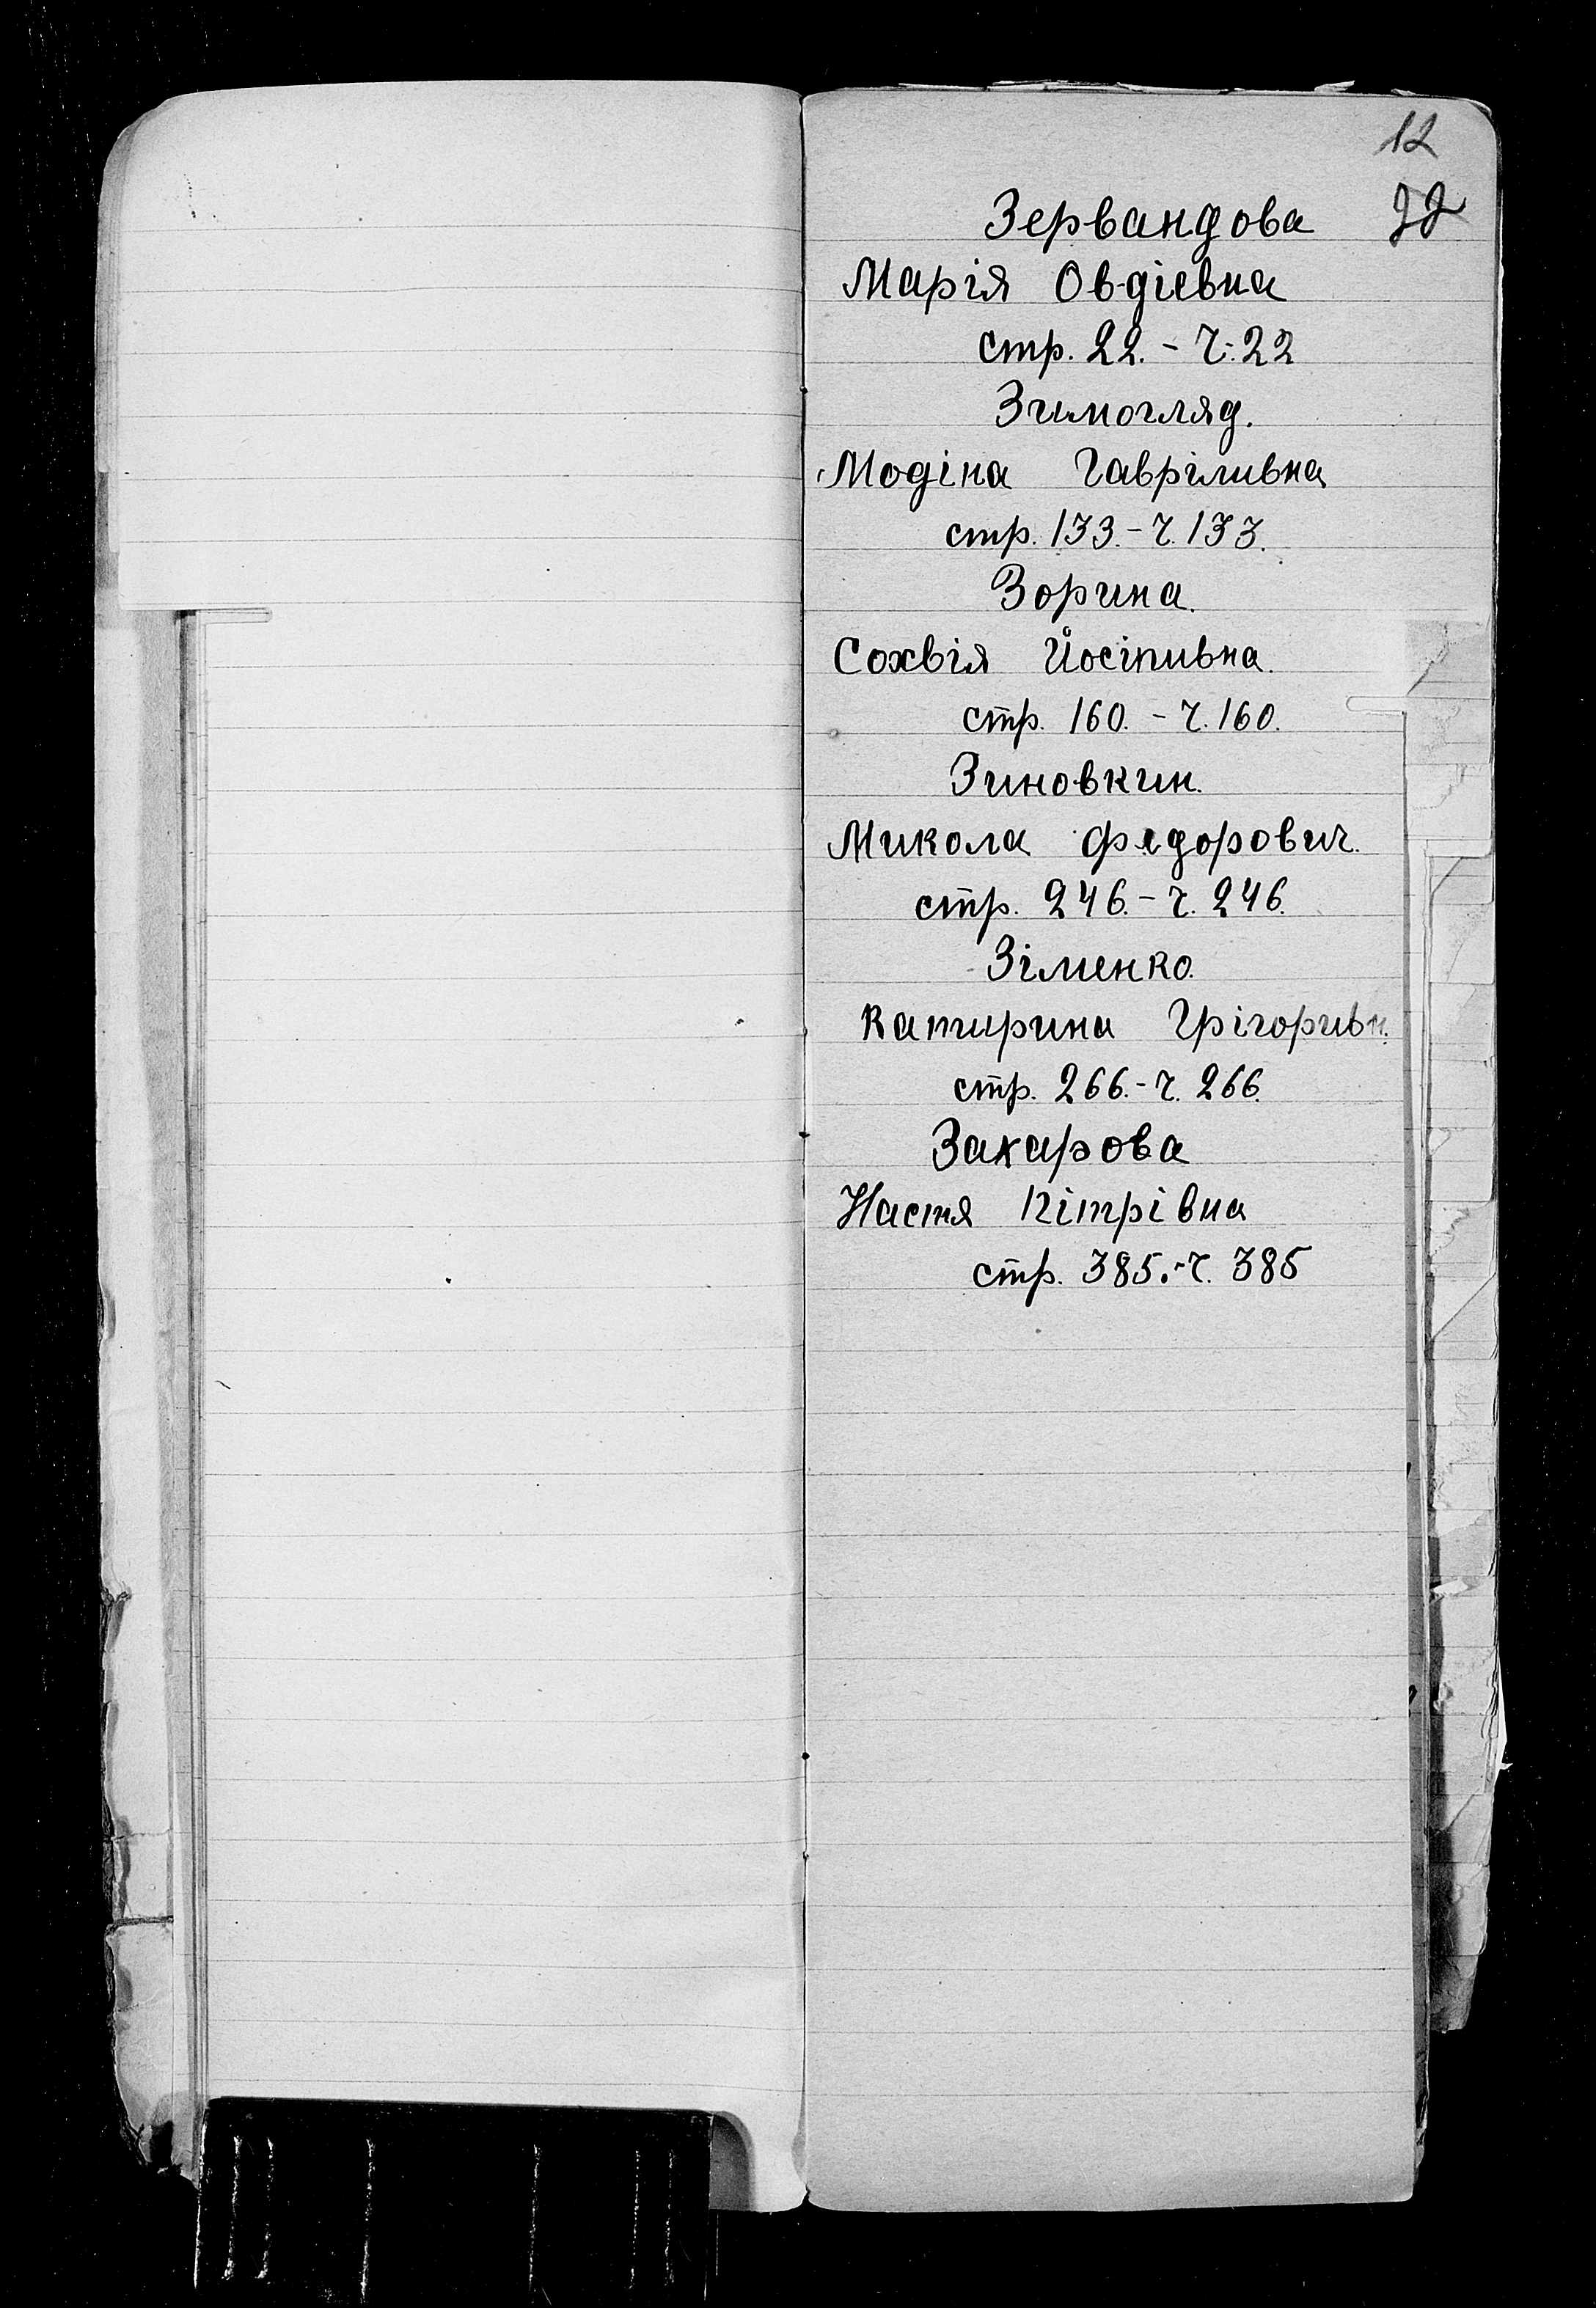 12
Зервандова
Марія Овдієвна
стр. 22. - ч. 22
Зимогляд.
Модіна Гавріливна
стр. 133. - ч. 133.
Зорина.
Сохвія Йосіпивна.
стр. 160. - ч. 160.
Зиновкин.
Микола Федорович.
стр. 246. - ч. 246.
Зіменко.
Катирина Грігоривн.
стр. 266. - ч. 266.
Захарова
Настя Пітрівна
стр. 385. - ч. 385